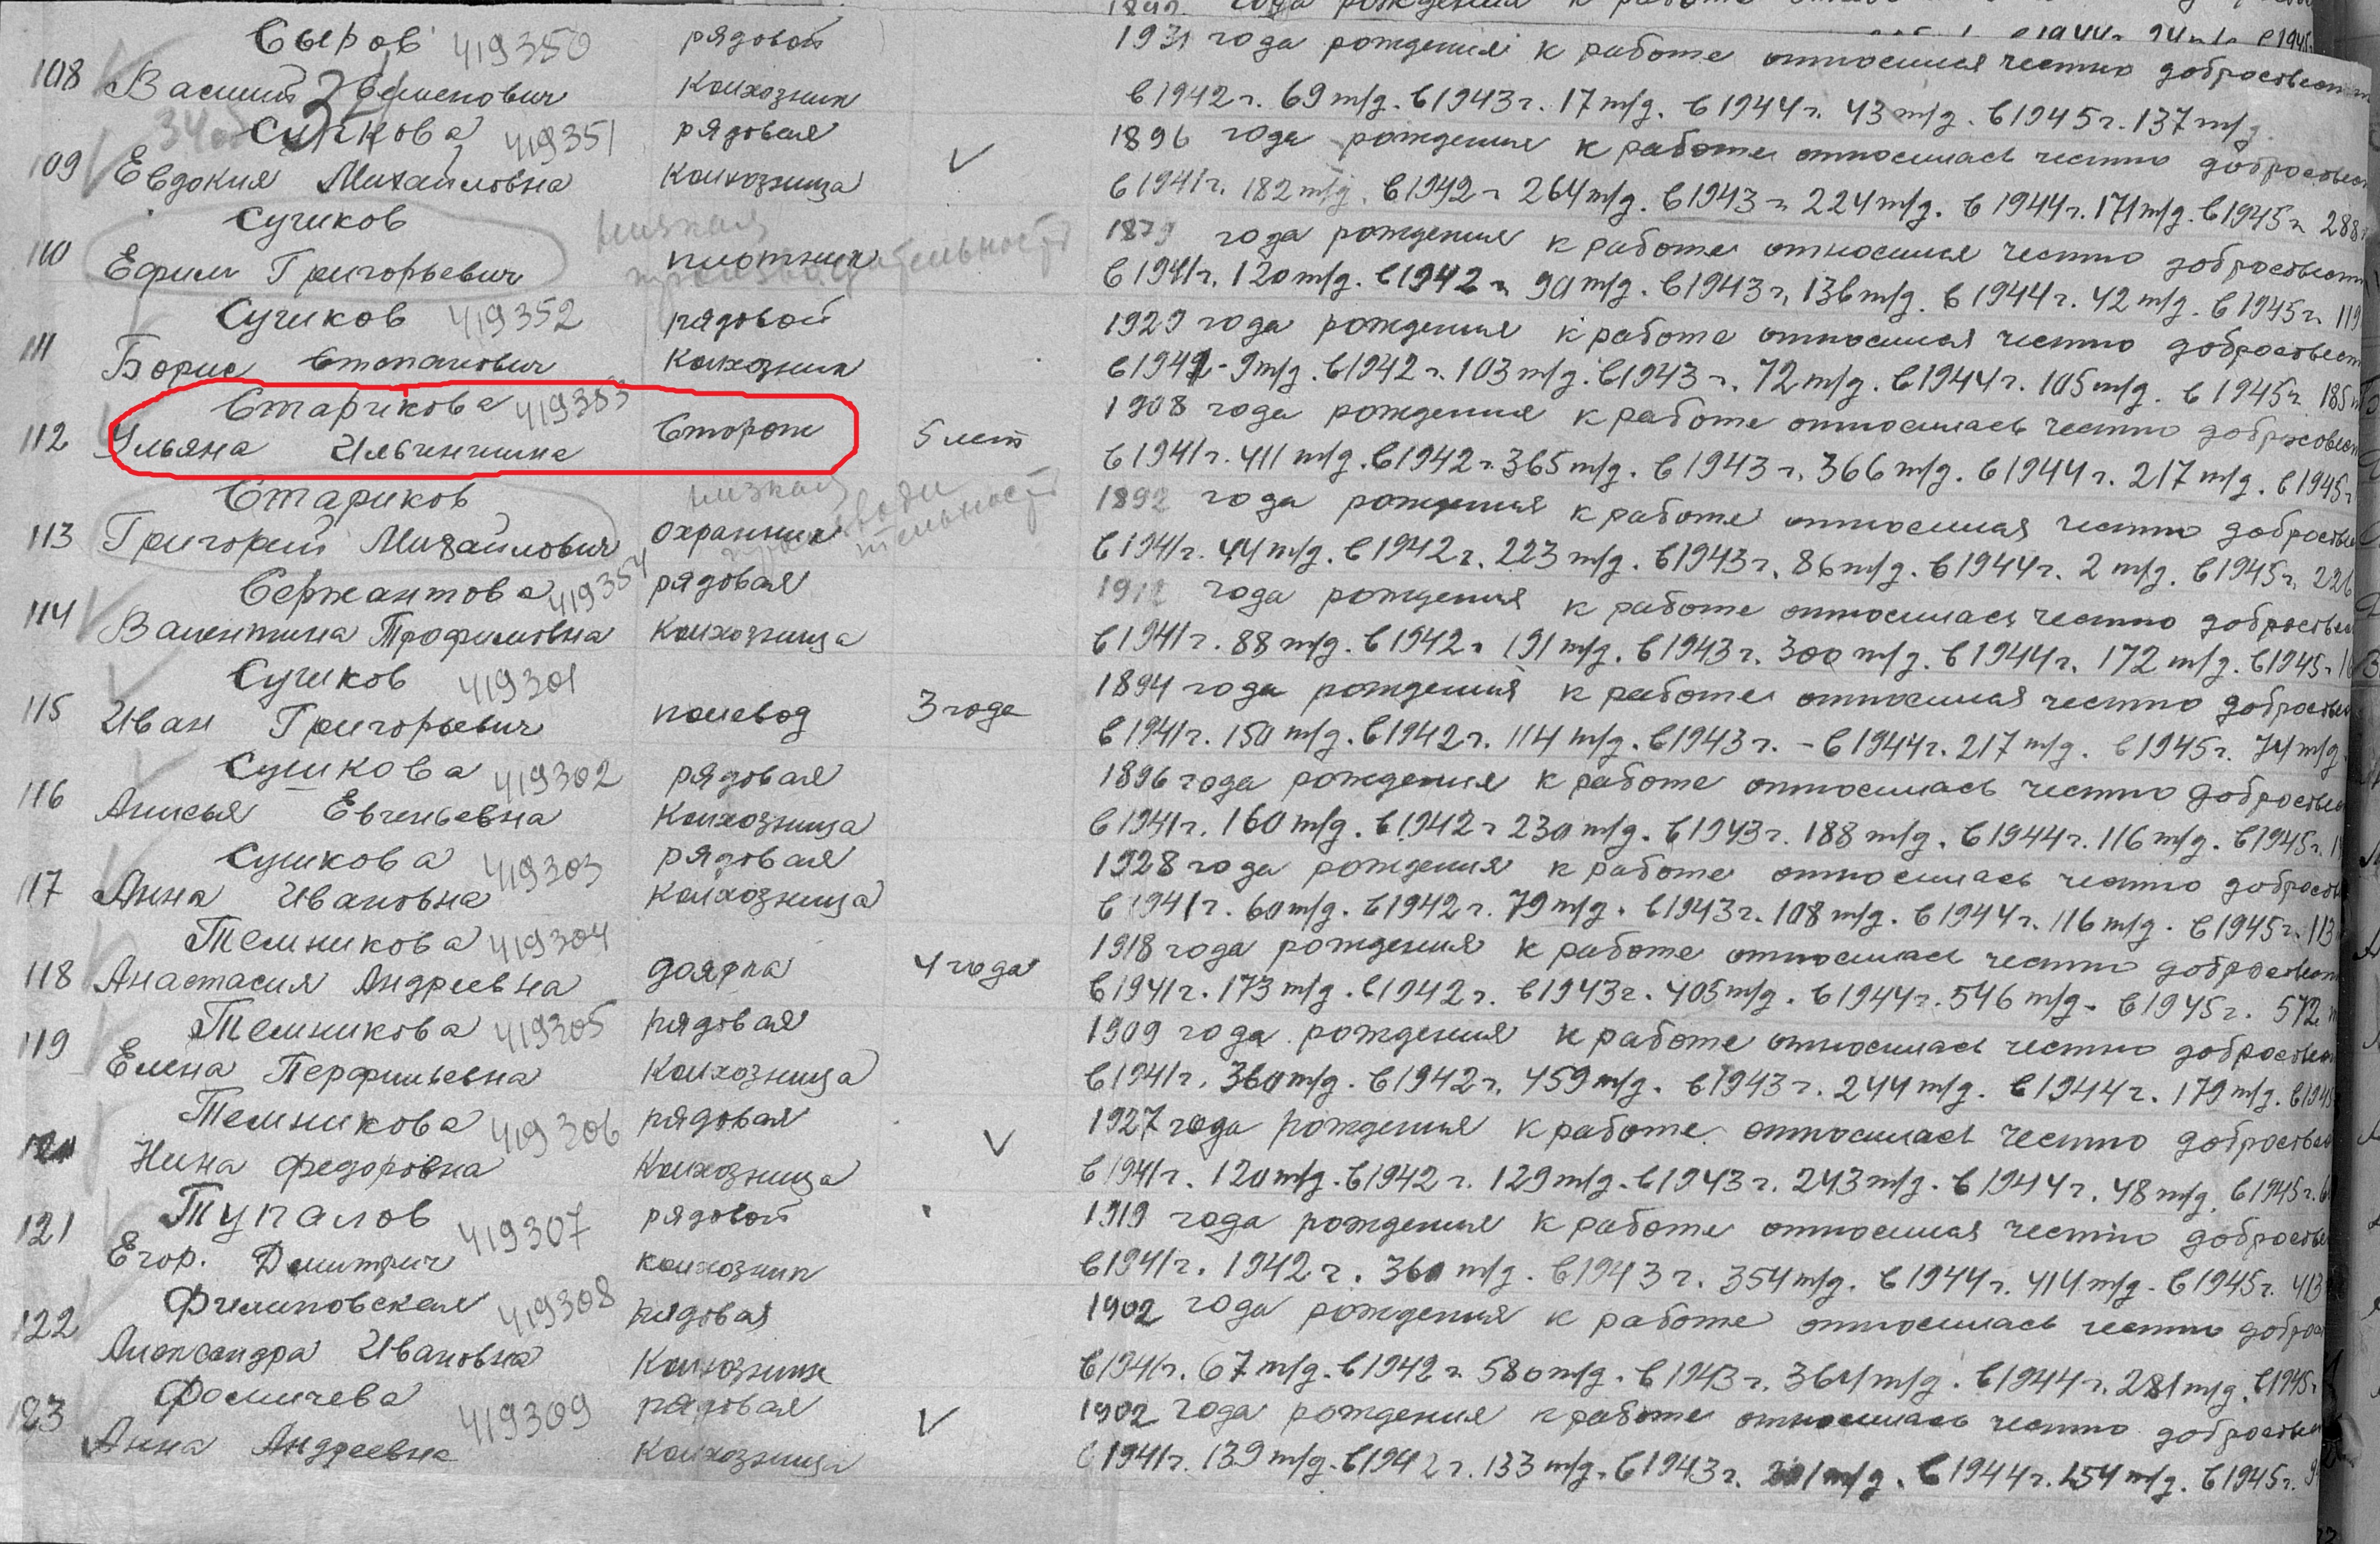 Сыров 419350 рядовой 1931 года рождения к работе относился честно добросовестно
108 Василий Семенович колхозник в 1942 г. 69 т/д. в 1943 г. 17 т/д. в 1944 г. 43 т/д. в 1945 г. 137 т/д.
Сучкова 419351 рядовая 1896 года рождения к работе относилась честно добросовест
109 Евдокия Михайловна колхозница в 1941 г. 182 т/д. в 1942 г. 264 т/д. в 1943 г. 224 т/д. в 1944 г. 171 т/д. в 1945 г. 288
Сучков низкая 1879 года рождения к работе относился честно добросовестно
110 Ефим Григорьевич плотник производительность в 1941 г. 120 т/д. в 1942 г. 90 т/д. в 1943 г. 136 т/д. в 1944 г. 42 т/д. в 1945 г. 119
Сучков 419352 рядовой 1929 года рождения к работе относился честно добросовест
111 Борис Степанович колхозник в 1941 - 9 т/д. в 1942 г. 103 т/д. в 1943 г. 72 т/д. в 1944 г. 105 т/д. в 1945 г. 185
Старикова 419353 1908 года рождения к работе относилась честно добросовест
112 Ульяна Ильинична Сторож 5 лет в 1941 г. 411 т/д. в 1942 г. 365 т/д. в 1943 г. 366 т/д. в 1944 г. 217 т/д. в 1945 г.
Стариков низкая 1892 года рождения к работе относился честно добросовес
113 Григорий Михайлович охранник производительность в 1941 г. 44 т/д. в 1942 г. 223 т/д. в 1943 г. 86 т/д. в 1944 г. 2 т/д. в 1945 г. 226
Сержантова 419354 рядовая 1912 года рождения к работе относилась честно добросовес
114 Валентина Трофимовна колхозница в 1941 г. 88 т/д. в 1942 г. 191 т/д. в 1943 г. 300 т/д. в 1944 г. 172 т/д. в 1945 г.
Сучков 419301 1894 года рождения к работе относился честно добросовес
115 Иван Григорьевич полевод 3 года в 1941 г. 150 т/д. в 1942 г. 114 т/д. в 1943 г. - в 1944 г. 217 т/д. в 1945 г. 74 т/д
Сушкова 419302 рядовая 1896 года рождения к работе относилась честно добросовес
116 Анисья Евгеньевна колхозница в 1941 г. 160 т/д. в 1942 г. 230 т/д. в 1943 г. 188 т/д. в 1944 г. 116 т/д. в 1945 г.
Сушкова 419303 рядовая 1928 года рождения к работе относилась честно добросов
117 Анна Ивановна колхозница в 1941 г. 60 т/д. в 1942 г. 79 т/д. в 1943 г. 108 т/д. в 1944 г. 116 т/д. в 1945 г. 113
Темникова 419304 1918 года рождения к работе относилась честно добросовест
118 Анастасия Андреевна доярка 4 года в 1941 г. 173 т/д. в 1942 г. в 1943 г. 405 т/д. в 1944 г. 546 т/д. в 1945 г. 572
Темникова 419305 рядовая 1909 года рождения к работе относилась честно добросовес
119 Елена Перфильевна колхозница в 1941 г. 360 т/д. в 1942 г. 459 т/д. в 1943 г. 244 т/д. в 1944 г. 179 т/д. в 1945
Темникова 419306 рядовая 1927 года рождения к работе относилась честно добросовес
120 Нина Федоровна колхозница в 1941 г. 120 т/д. в 1942 г. 129 т/д. в 1943 г. 243 т/д. в 1944 г. 48 т/д. в 1945 г.
Тупалов 419307 рядовой 1919 года рождения к работе относился честно добросове
121 Егор. Дмитрич колхозник в 1941 г. 1942 г. 360 т/д. в 1943 г. 354 т/д. в 1944 г. 414 т/д. в 1945 г. 413
Филиповская 419308 рядовая 1902 года рождения к работе относилась честно доброс
122 Александра Ивановна в 1941 г. 67 т/д. в 1942 г. 580 т/д. в 1943 г. 364 т/д. в 1944 г. 281 т/д. в 1945 г.
Фомичева 419309 рядовая 1902 года рождения к работе относилась честно добросовес
123 Анна Андреевна колхозница в 1941 г. 139 т/д. в 1942 г. 133 т/д. в 1943 г. т/д. в 1944 г. 154 т/д. в 1945 г.